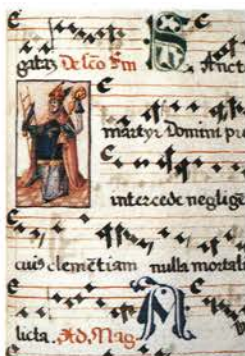 gatis De sco Sin Sancte
martyr Domini pre
intercede neglige
cuis clemētiam nulla mortali
licta. Ad Mag A